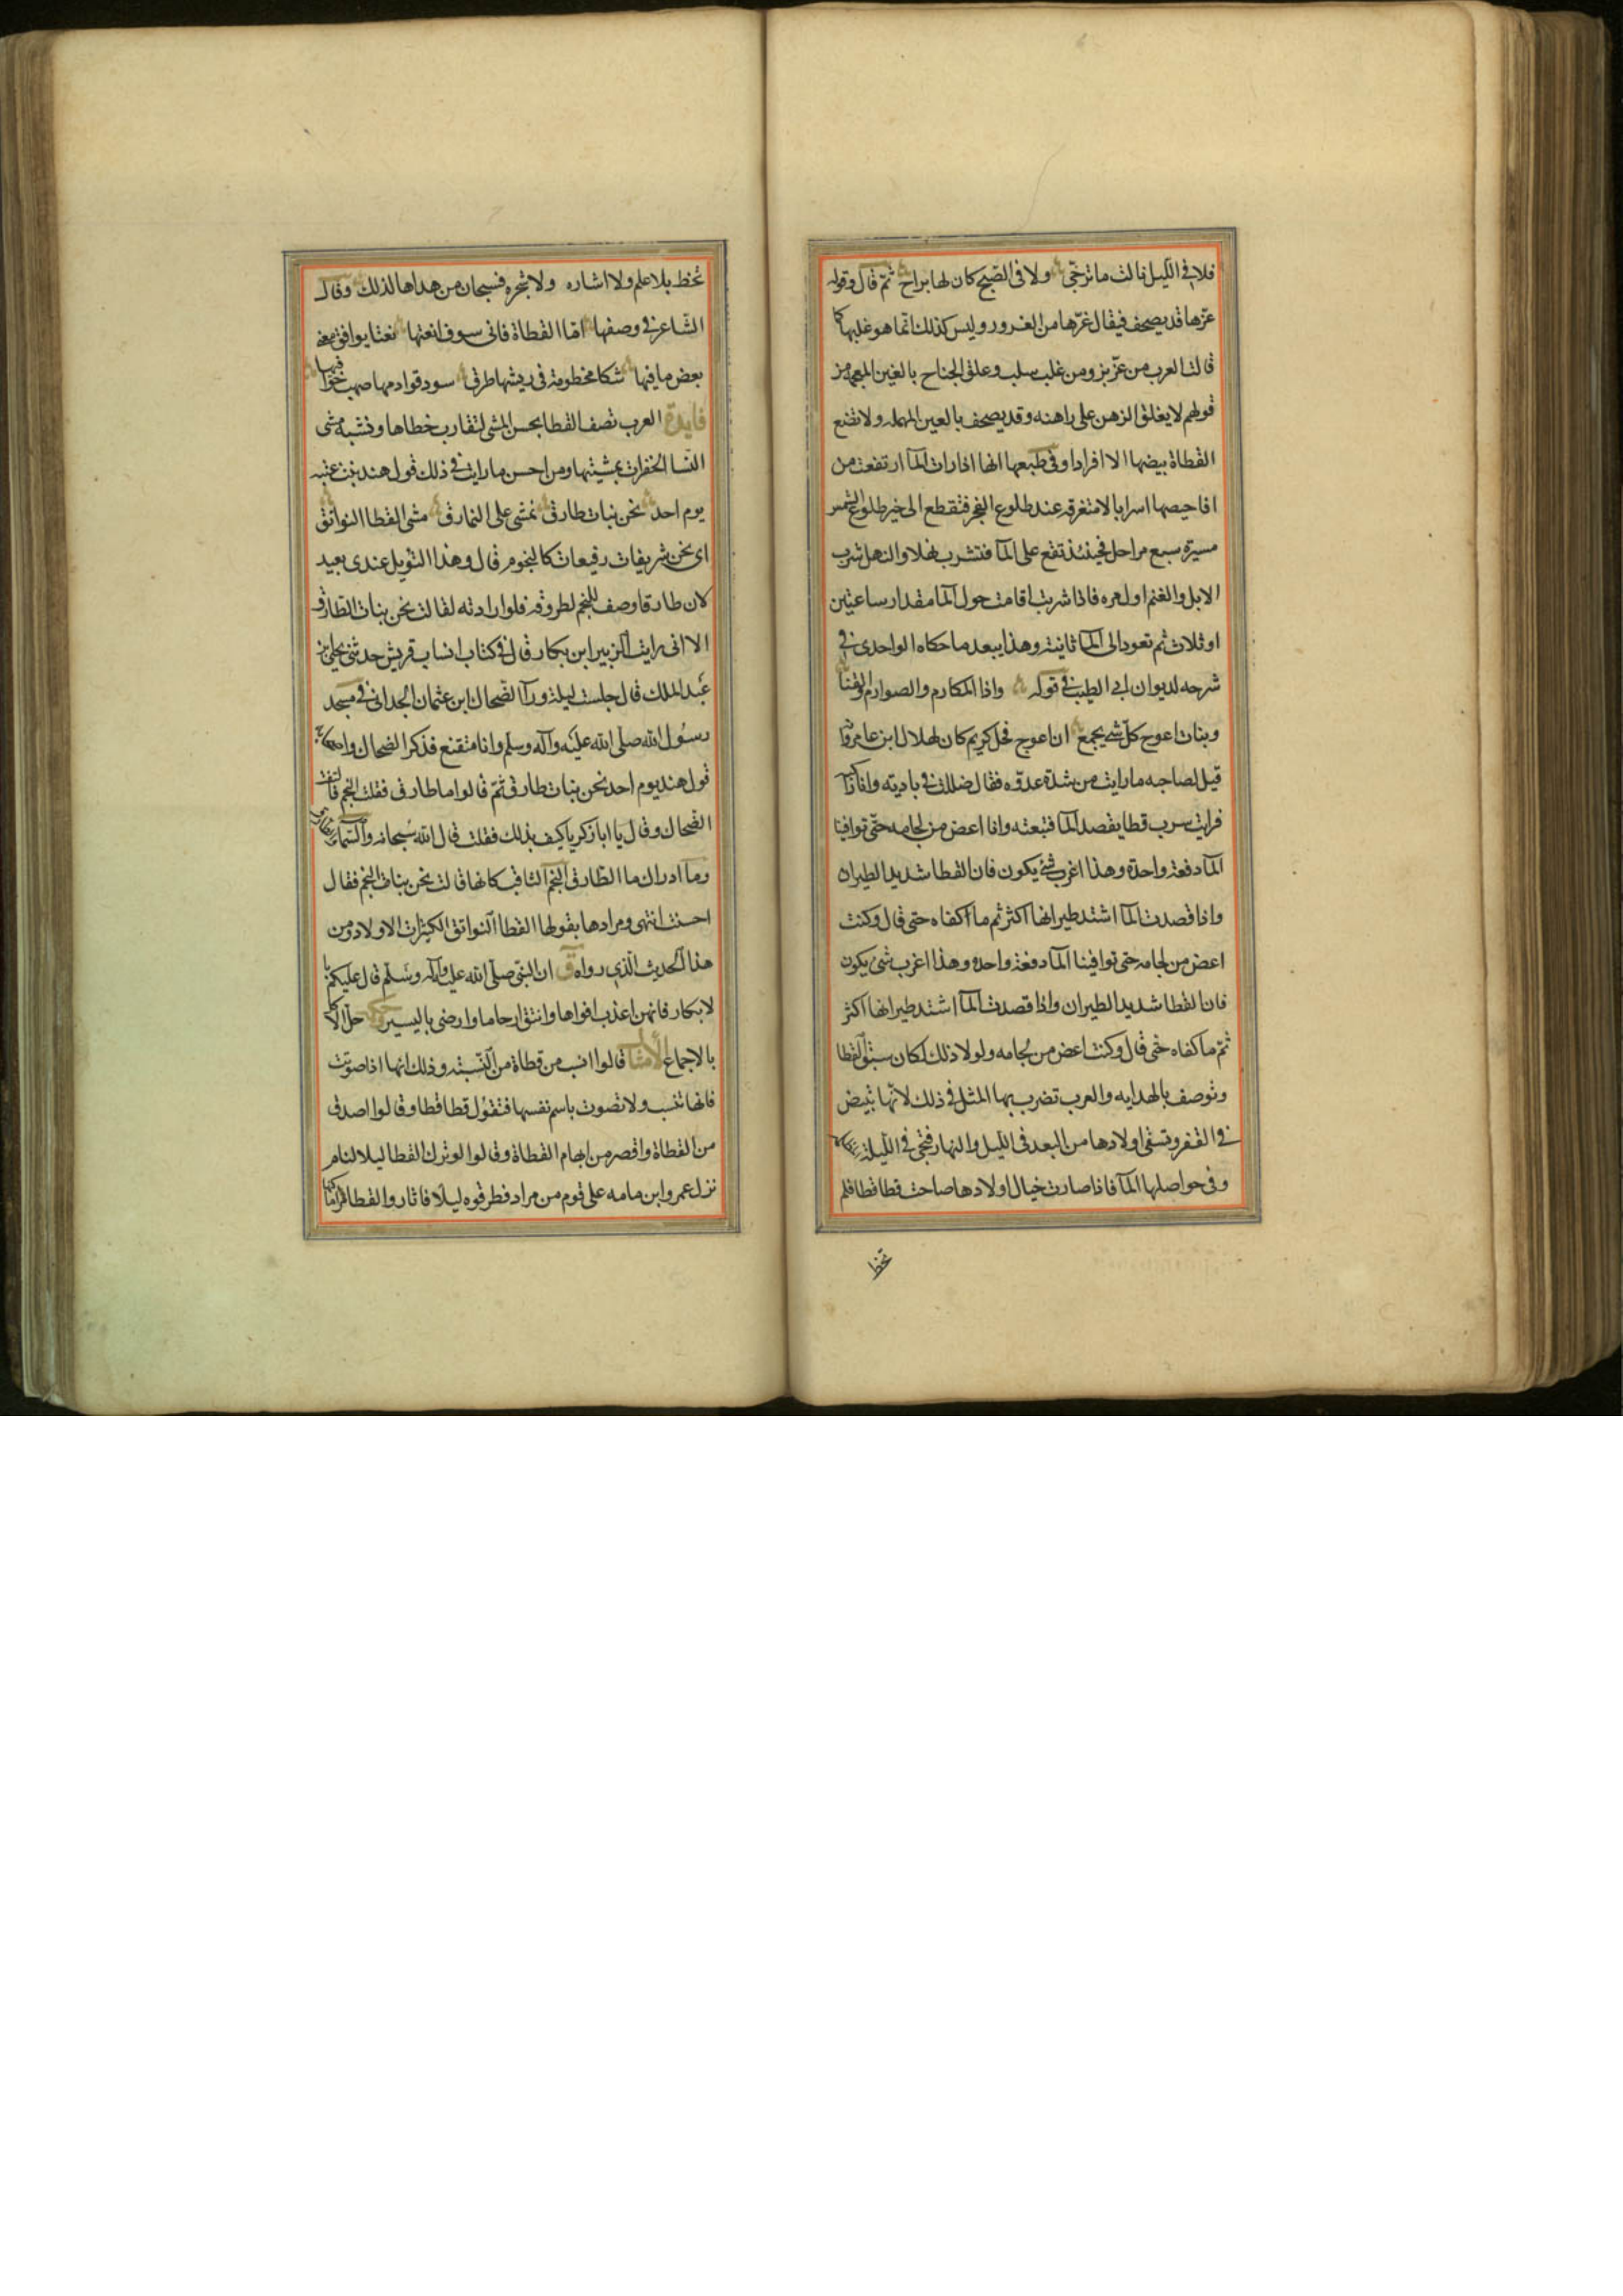 فلا في الليل نالت ما ترجّى ولا فى الصّبح كان لها براح ثمّ قال وقوله
عزّها قد يصحف فيقال غرّها من الغرور وليس كذلك انّما هو غلبها كما
قالت العرب من عزّ بز ومن غلب سلب وعلق الجناح بالغين المعجمه من
قولهم لا يغلق الرهن على راهنه وقد يصحف بالعين المهمله ولا تضع
القطاة بيضها الا افرادا وفى طبعها انها اذا رات المآ ارتفعت من
افاحيصها اسرابا لا متفرقه عند طلوع الفجر فتقطع الى حين طلوع الشمس
مسيرة سبع مراحل فحينئذ تقع على المآ فتشرب نهلا والنهل شرب
الابل والغنم اول مره فاذا شربت اقامت حول المآ مقدار ساعتين
او ثلاث ثم تعود الى المآ ثانيته وهذا يبعد ما حكاه الواحدى فى
شرحه لديوان ابى الطيب فى قوله واذا المكارم والصوارم والقنا
وبنات اعوج كل شى يجمع ان اعوج فحل كريم كان لهلال ابن عامر وانه
قيل لصاحبه ما رايت من شدة عدوه فقال ضللت فى باديه وانا راكبه
فرايت سرب قطا يقصد المآ فتبعته وانا اعض من لجامه حتّى توافينا
المآ دفعة واحدة وهذا اغرب شئ يكون فان القطا شديد الطيران
واذا قصدت المآ اشتد طيرانها اكثر ثم ما اكفاه حتى قال وكنت
اعض من لجامه حتى توافينا المآ دفعة واحده وهذا اغرب شئ يكون
فان القطا شديد الطيران واذا قصدت المآ اشتد طيرانها اكثر
ثمّ ما كفاه حتى قال وكنت اعض من لجامه ولولا ذلك لكان سبق القطا
وتوصف بالهدايه والعرب تضرب بها المثل فى ذلك لانّها تبيض
فى القفر وتسقى اولادها من البعد فى الليل والنهار فتجى فى الليلة
وفى حواصلها المآ فاذا صارت خيال اولادها صاحت قطا قطا فلم
تخط
تخط بلا علم ولا اشاره ولا شجره فسبحان من هداها لذلك وقال
الشّاعر فى وصفها امّا القطاة فانى سوف انعتها نعتا يوافق نعتى
بعض ما فيها سكا مخطومة فى ريشها طرق سود قوادمها صهب خوافيها
فايدة العرب تصف القطا بحسن المشى لتقارب خطاها وتشبه مشى
النّسا الخفرات بمشيتها ومن احسن ما رايت فى ذلك قول هند بنت عتبه
يوم احد نحن بنات طارق نمشى على النمارق مشى القطا النواتق
اى نحن شريفات رفيعات كالنجوم قال وهذا التويل عندى بعيد
لان طارقا وصف للنجم لطروقه فلو ارادته لقالت نحن بنات الطارق
الا انى رايت الزبير ابن بكار قال فى كتاب انساب قريش حدثنى يحيى بن
عبد الملك قال جلست ليلة ورآ الضحاك ابن عثمان الجدانى فى مسجد
رسول الله صلّى الله عليه وآله وسلم وانا متقنع فذكر الضحاك واصحابه
قول هند يوم احد نحن بنات طارق ثمّ قالوا ما طارق فقلت النجم فالتفت
الضحاك وقال يا ابا زكريا كيف بذلك فقلت قال الله سبحانه والسّمآء والطارق
وما ادراك ما الطّارق النجم الثاقب كانها قالت نحن بنات النجم فقال
احسنت انتهى ومرادها بقولها القطا النواتق الكثيرات الاولاد ومن
هذا الحديث الّذى رواه ق ان النبى صلّى الله عليه وآله وسلّم قال عليكم با
لابكار فانهن اعذب افواها وانتق ارحاما وارضى باليسير وحكمه حلّ الاكل
بالاجماع الامثال قالوا انسب من قطاة من النّسبته وذلك انها اذا صوتت
فانها تنسب ولا تصوت باسم نفسها فتقول قطا قطا وقالوا اصدق
من القطاة واقصر من ابهام القطاة وقالوا لو ترك القطا ليلا لنام
نزل عمرو ابن مامه على قوم من مراد فطرقوه ليلا فاثاروا القطا من اماكنها